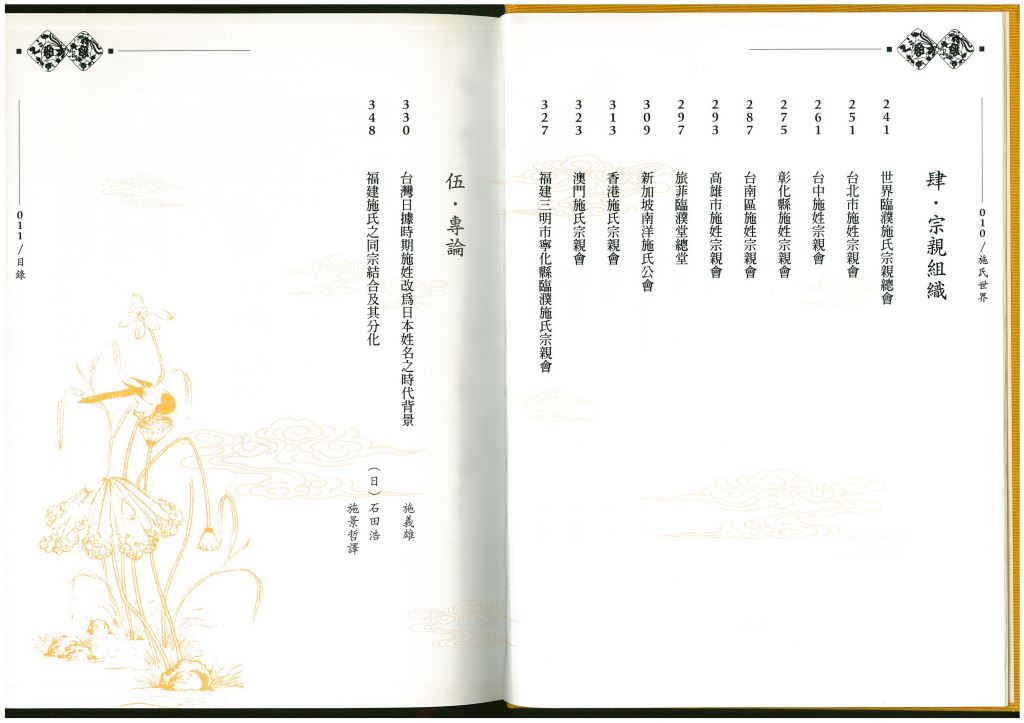 010/施氏世界
肆・宗親組織
241 世界臨濮施氏宗親總會
251 台北市施姓宗親會
261 台中施姓宗親會
275 彰化縣施姓宗親會
287 台南區施姓宗親會
293 高雄市施姓宗親會
297 旅菲臨濮堂總堂
309 新加坡南洋施氏公會
313 香港施氏宗親會
323 澳門施氏宗親會
327 福建三明市寧化縣臨濮施氏宗親會
伍・專論
330 台灣日據時期施姓改爲日本姓名之時代背景 施義雄
348 福建施氏之同宗結合及其分化 （日）石田浩
施景哲譯
011/目錄